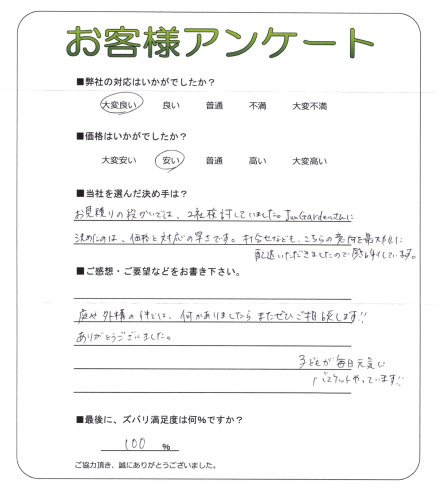 お客様アンケート
■弊社の対応はいかがでしたか?
大変良い 良い 普通 不満 大変不満
■価格はいかがでしたか?
大変安い 安い 普通 高い 大変高い
■当社を選んだ決め手は?
お見積りの段階では、2社検討していました。JunGardenさんに
決めたのは、価格と対応の早さです。打合せなども、こちらの意向を最大限に
配慮いただきましたので感謝しています。
■ご感想・ご要望などをお書き下さい。
庭や外構の件では、何かありましたらまたぜひご相談します!!
ありがとうございました。
子どもが毎日元気に
バスケットやっています!!
■最後に、ズバリ満足度は何%ですか?
100 %
ご協力頂き、誠にありがとうございました。